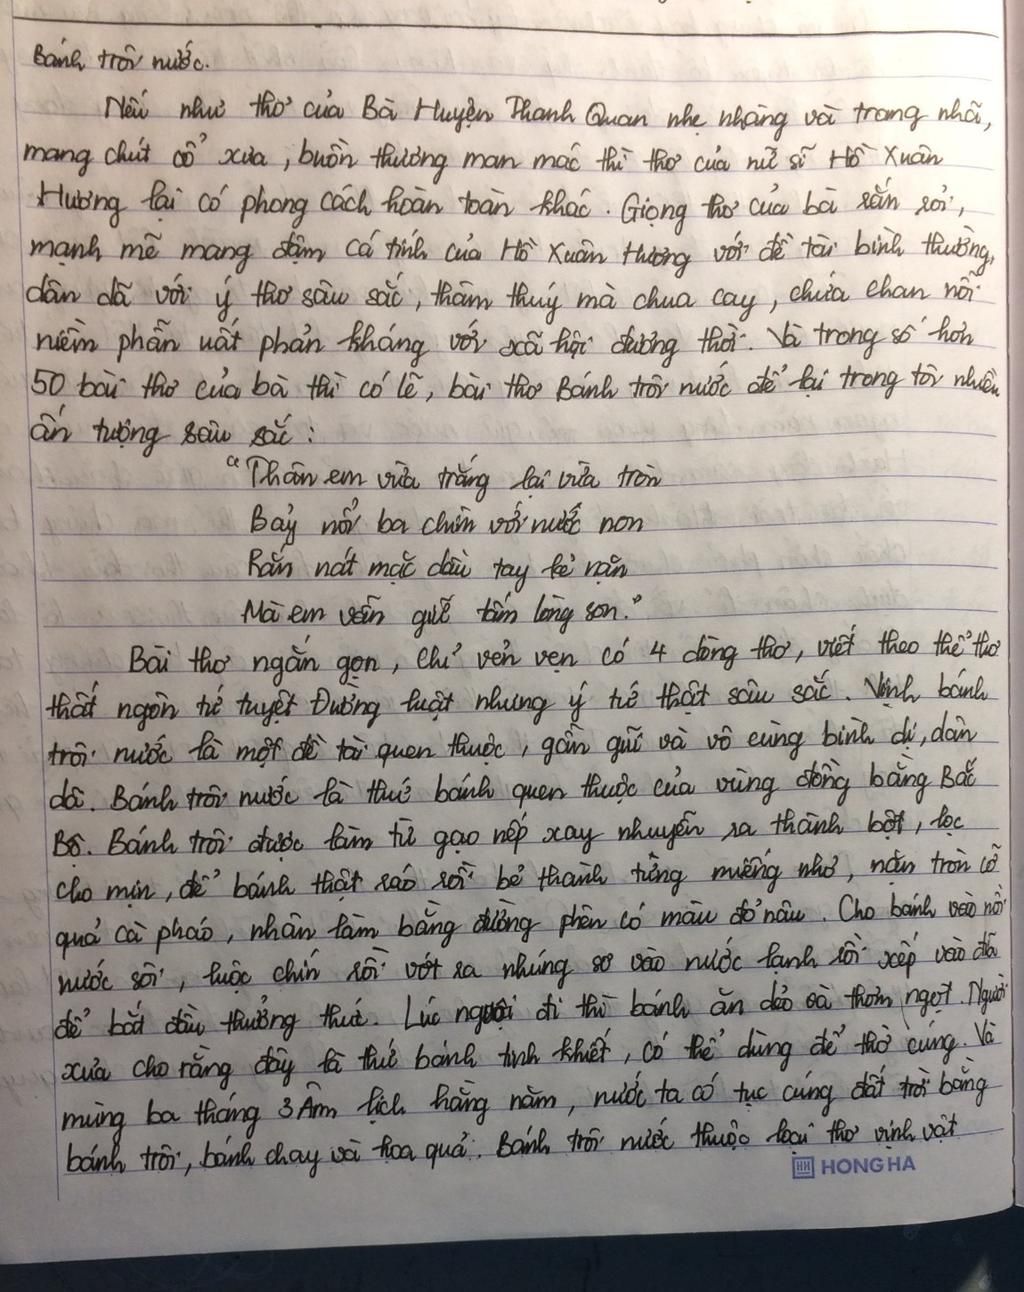 Bánh trôi nước.
Nếu như thơ của Bà Huyện Thanh Quan nhẹ nhàng và trang nhã,
mang chút cổ xưa, buồn thương man mác thì thơ của nữ sĩ Hồ Xuân
Hương lại có phong cách hoàn toàn khác. Giọng thơ của bà rắn rỏi,
mạnh mẽ mang đậm cá tính của Hồ Xuân Hương với đề tài bình thường,
dân dã với ý thơ sâu sắc, thâm thuý mà chua cay, chứa chan nỗi
niềm phẫn uất phản kháng với xã hội đương thời. Và trong số hơn
50 bài thơ của bà thì có lẽ, bài thơ Bánh trôi nước để lại trong tôi nhiều
ấn tượng sâu sắc:
"Thân em vừa trắng lại vừa tròn
Bảy nổi ba chìm với nước non
Rắn nát mặc dầu tay kẻ nặn
Mà em vẫn giữ tấm lòng son."
Bài thơ ngắn gọn, chỉ vẻn vẹn có 4 dòng thơ, viết theo thể thơ
thất ngôn tứ tuyệt Đường luật nhưng ý tứ thật sâu sắc. Vịnh bánh
trôi nước là một đề tài quen thuộc, gần gũi và vô cùng bình dị, dân
dã. Bánh trôi nước là thứ bánh quen thuộc của vùng đồng bằng Bắc
Bộ. Bánh trôi được làm từ gạo nếp xay nhuyễn ra thành bột, lọc
cho mịn, để bánh thật ráo rồi bẻ thành từng miếng nhỏ, nặn tròn cỡ
quả cà pháo, nhân làm bằng đường phên có màu đỏ nâu. Cho bánh vào nồi
nước sôi, luộc chín rồi vớt ra nhúng sơ vào nước lạnh rồi xếp vào đĩa
để bắt đầu thưởng thức. Lúc nguội đi thì bánh ăn dẻo và thơm ngọt. Người
xưa cho rằng đây là thứ bánh tinh khiết, có thể dùng để thờ cúng. Và
mùng ba tháng 3 Âm lịch hằng năm, nước ta có tục cúng đất trời bằng
bánh trôi, bánh chay và hoa quả. Bánh trôi nước thuộc loại thơ vịnh vật
HH HONG HA